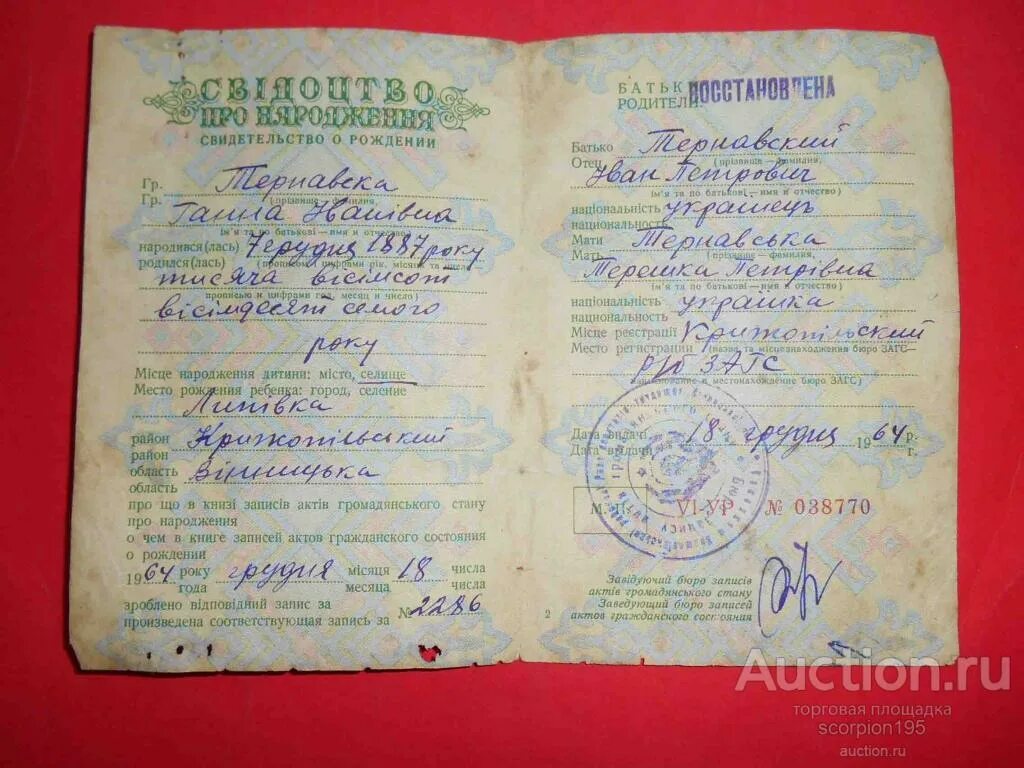 СВІДОЦТВО
ПРО НАРОДЖЕННЯ
СВИДЕТЕЛЬСТВО О РОЖДЕНИИ
Гр. Тернавска
Гр. (прізвище – фамилия,
Ганна Іванівна
ім'я та по батькові – имя и отчество)
народився(лась) 7 грудня 1887 року
родился(лась) (прописом і цифрами рік, місяць та число)
тисяча вісімсот
прописью и цифрами год, месяц и число)
вісімдесят семого
року
Місце народження дитини: місто, селище
Место рождения ребенка: город, селение
Липівка
район Крижопільський
район
область Вінницька
область
про що в книзі записів актів громадянського стану
про народження
о чем в книге записей актов гражданского состояния
о рождении
1964 року грудня місяця 18 числа
года месяца числа
зроблено відповідний запис за № 2286
произведена соответствующая запись за
БАТЬК ВОССТАНОВЛЕНА
РОДИТЕЛИ
Батько Тернавский
Отец (прізвище – фамилия,
Іван Петрович
ім'я та по батькові – имя и отчество)
національність українець
национальность
Мати Тернавська
Мать (прізвище – фамилия,
Петрівна
ім'я та по батькові – имя и отчество)
національність українка
национальность
Місце реєстрації Крижопільский
Место регистрации (назва та місцезнаходження бюро ЗАГС–
р/б ЗАГС
наименование и местонахождение бюро ЗАГС)
Дата видачі 18 грудня 1964 р.
Дата выдачи г.
М. П. VI-УР № 038770
Завідуючий бюро записів
актів громадянського стану
Заведующий бюро записей
актов гражданского состояния
2
Auction.ru
торговая площадка
scorpion195
auction.ru